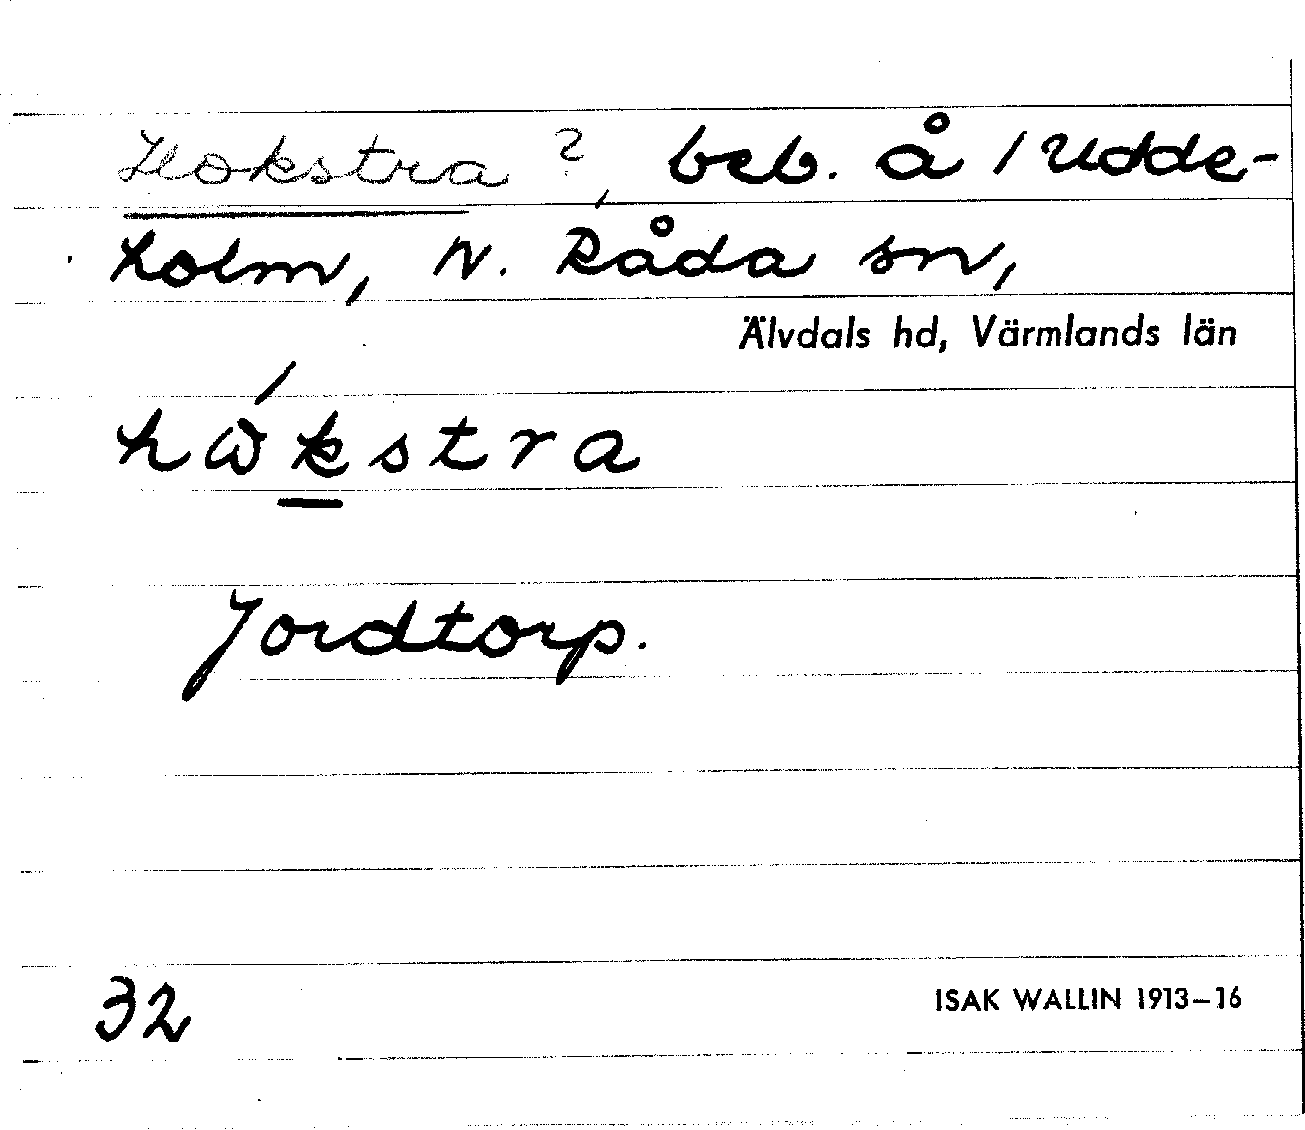 Hokstra ?, beb. å / Udde-
holm, N. Råda sn,
Älvdals hd, Värmlands län
hώkstra
Jordtorp.
32
ISAK WALLIN 1913–16